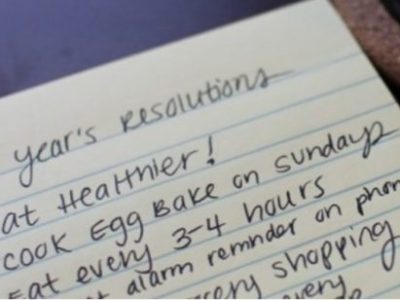 year's resolutions
at Healthier!
cook Egg Bake on sundays
Eat every 3-4 hours
alarm reminder on phon
ery shopping
very